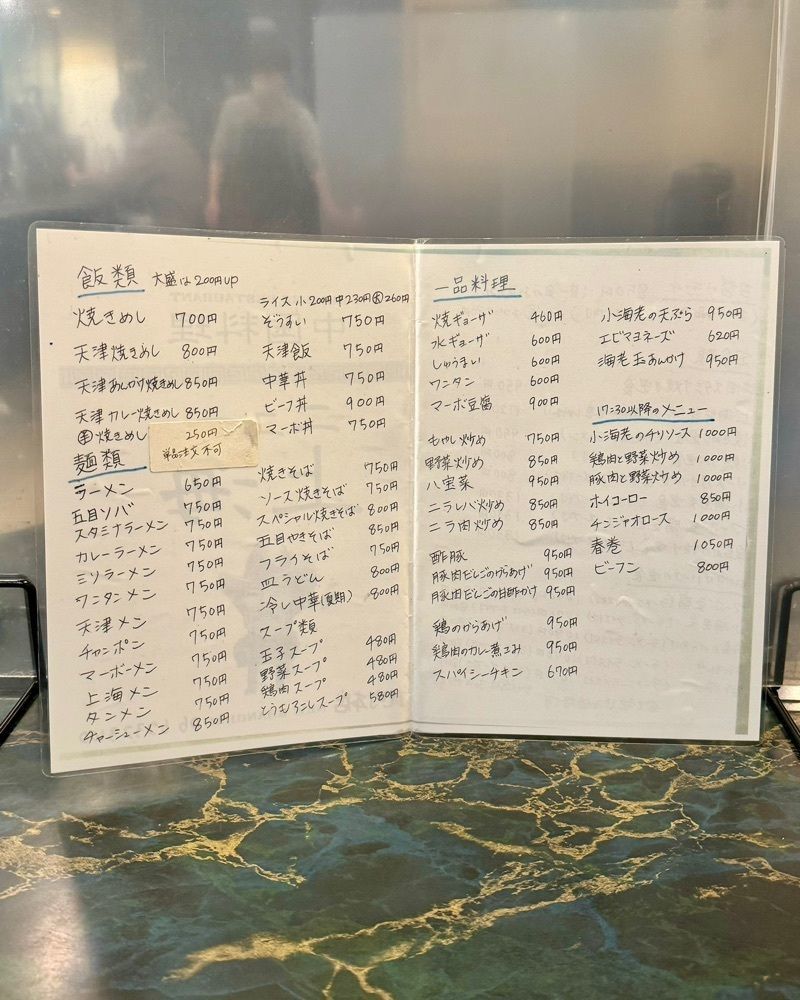 飯類 大盛は200円UP
焼きめし 700円
天津焼きめし 800円
天津あんかけ焼きめし 850円
天津カレー焼きめし 850円
焼きめし 250円
単品注文不可
ライス 小200円 中230円 大260円
ぞうすい 750円
天津飯 750円
中華丼 750円
ビーフ丼 900円
マーボ丼 750円
麺類
ラーメン 650円
五目ソバ 750円
スタミナラーメン 750円
カレーラーメン 750円
ミソラーメン 750円
ワンタンメン 750円
天津メン 750円
チャンポン 750円
マーボーメン 750円
上海メン 750円
タンメン 750円
チャーシューメン 850円
焼きそば 750円
ソース焼きそば 750円
スペシャル焼きそば 800円
五目やきそば 850円
フライそば 750円
皿うどん 800円
冷し中華(夏期) 800円
スープ類
玉子スープ 480円
野菜スープ 480円
鶏肉スープ 480円
とうもろこしスープ 580円
一品料理
焼ギョーザ 460円
水ギョーザ 600円
しゅうまい 600円
ワンタン 600円
マーボ豆腐 900円
もやし炒め 750円
野菜炒め 850円
八宝菜 950円
ニラレバ炒め 850円
ニラ肉炒め 850円
酢豚 950円
豚肉だんごのからあげ 950円
豚肉だんごの甘酢かけ 950円
鶏のからあげ 950円
鶏肉のカレー煮こみ 950円
スパイシーチキン 670円
小海老の天ぷら 950円
エビマヨネーズ 620円
海老玉あんかけ 950円
17:30以降のメニュー
小海老のチリソース 1000円
鶏肉と野菜炒め 1000円
豚肉と野菜炒め 1000円
ホイコーロー 850円
チンジャオロース 1000円
春巻 1050円
ビーフン 800円